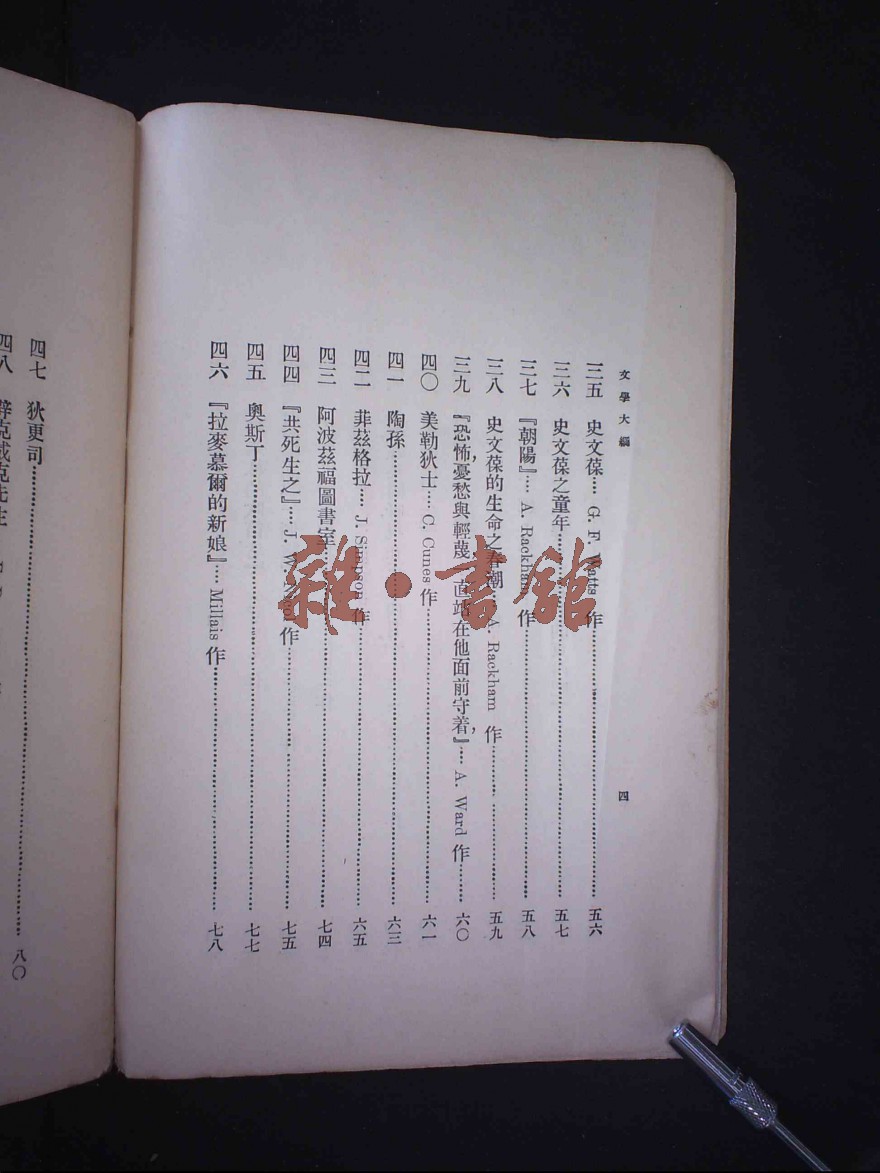 文學大綱
三五 史文葆…… G. F. Watts 作…… 五六
三六 史文葆之童年…… 五七
三七 『朝陽』…… A. Rackham 作…… 五八
三八 史文葆的生命之春潮…… A. Rackham 作…… 五九
三九 『恐怖，憂愁與輕蔑，一直站在他面前守着，』…… A. Ward 作…… 六〇
四〇 美勒狄士…… C. Cunes 作…… 六一
四一 陶孫…… 六三
四二 菲茲格拉…… J. Simpson 作…… 六五
四三 阿波茲福圖書室…… 七四
四四 『共死生之』…… J. 作…… 七五
四五 奧斯丁…… 七七
四六 『拉麥慕爾的新娘』…… Millais 作…… 七八
四
四七 狄更司…… 八〇
四八
雜·書館